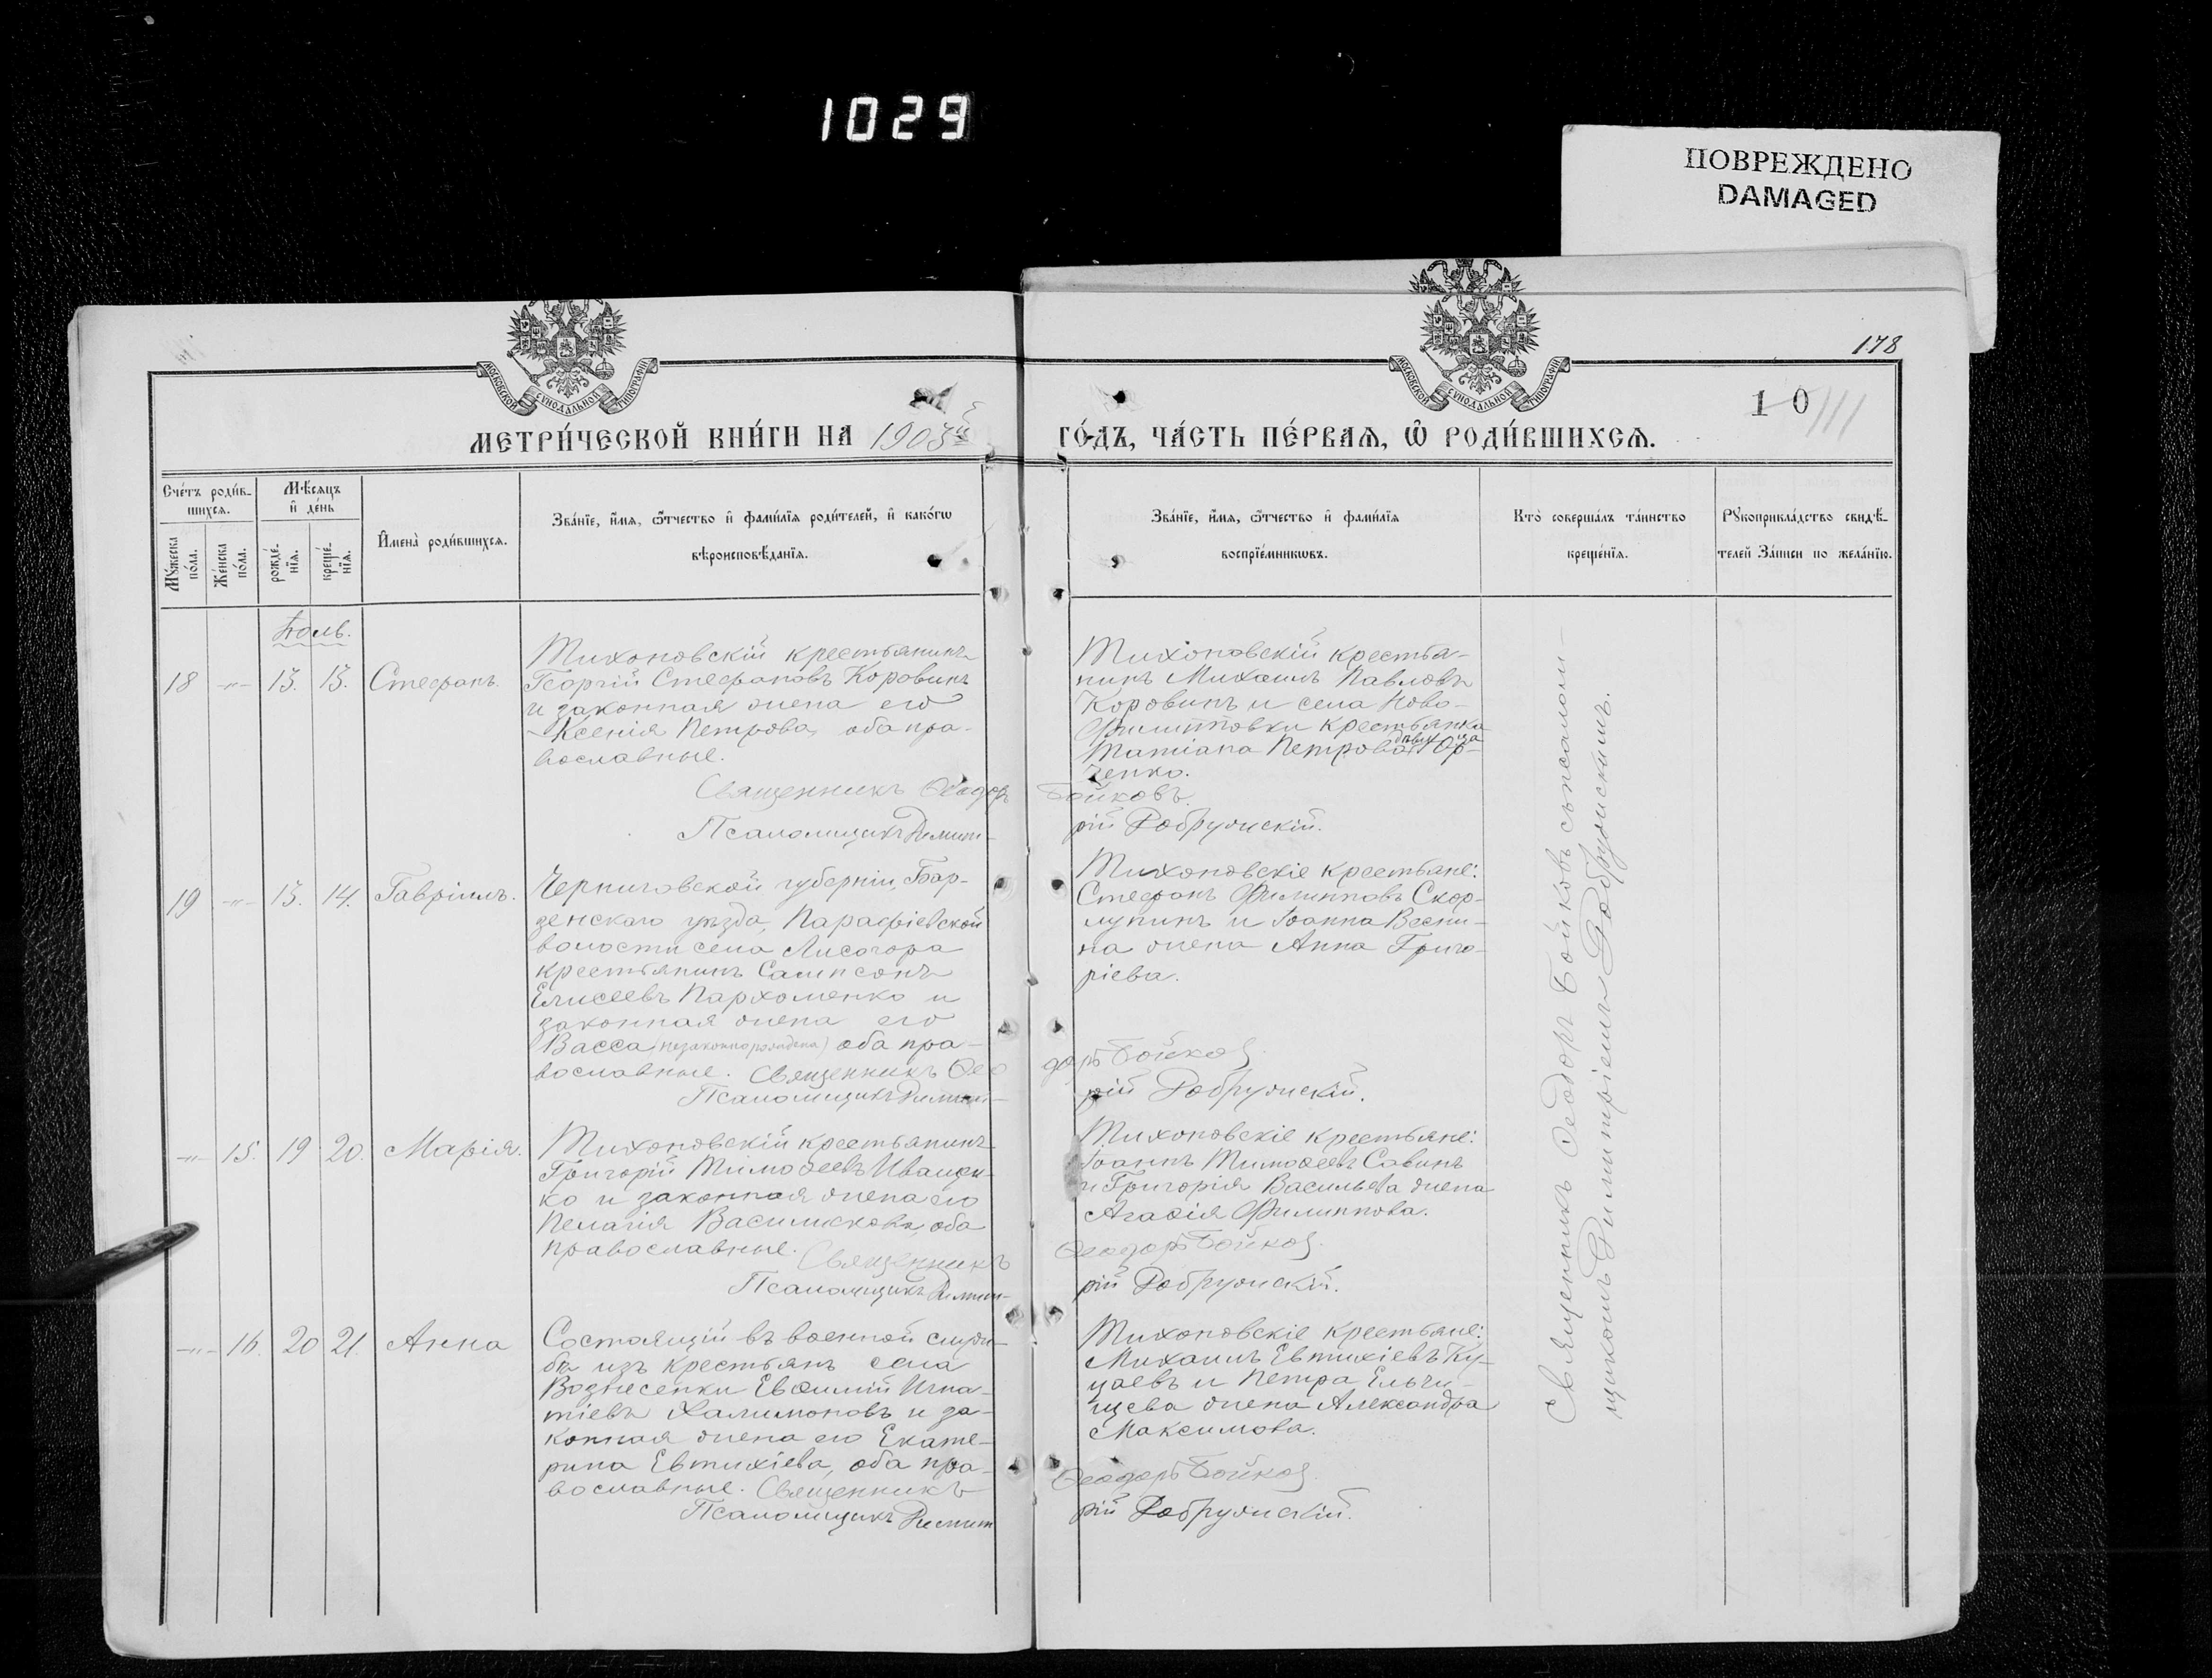 1029
ПОВРЕЖДЕНО
DAMAGED
178
МОСКОВСКОЙ СУНОДАЛЬНОЙ ТИПОГРАФІИ
МОСКОВСКОЙ СУНОДАЛЬНОЙ ТИПОГРАФІИ
10
111
МЕТРИ́ЧЕСКОЙ КНИ́ГИ НА 1903й
ГО́ДЪ, ЧА́СТЬ ПЕ́РВАѦ, Ѡ҆ РОДИ́ВШИХСѦ.
Сче́тъ роди́в-
шихсѧ.
Мꙋ́жеска по́ла.
Же́нска по́ла.
Мѣ́сѧцъ
и҆ де́нь
рожде́-нїѧ.
креще́-нїѧ.
И҆мена̀ роди́вшихсѧ.
Зва́нїе, и҆́мѧ, ѻ҆́тчество и҆ фами́лїѧ роди́телей, и҆ како́гѡ
вѣроисповѣ́данїѧ.
Зва́нїе, и҆́мѧ, ѻ҆́тчество и҆ фами́лїѧ
воспрїе́мникѡвъ.
Кто̀ соверша́лъ та́инство
креще́нїѧ.
Рꙋкоприкла́дство свидѣ́-
телей за́писи по жела́нїю.
Іюль.
18 -"- 13. 13. Стефанъ.
Тихоновскій крестьянинъ
Георгій Стефановъ Коровинъ
и законная жена его
Ксенія Петрова, оба пра-
вославные.
Священникъ Ѳеодоръ Бойковъ.
Псаломщикъ Димит-рій Добружскій.
Тихоновскій крестья-
нинъ Михаилъ Павловъ
Коровинъ и села Ново-
Филипповки крестьянка
Татіана Петрова
ченко.
19 -"- 13. 14. Гавріилъ.
Черниговской губерніи, Бор-
зенскаго уѣзда, Парафіевской
волости села Лисогора
крестьянинъ Сампсонъ
Елисеевъ Пархоменко и
законная жена его
Васса (незаконнорождена) оба пра-
вославные. Священникъ Ѳео-доръ Бойковъ
Псаломщикъ Димит-рій Добружскій.
Тихоновскіе крестьяне:
Стефанъ Филипповъ Скор-
лупинъ и Іоанна Весни-
на жена Анна Григо-
ріева.
-"- 15. 19 20. Марія.
Тихоновскій крестьянинъ
Григорій Тимоѳеевъ Иващен-
ко и законная жена его
Пелагія Василискова, оба
православные. Священникъ Ѳеодоръ Бойковъ.
Псаломщикъ Димит-рій Добружскій.
Тихоновскіе крестьяне:
Іоаннъ Тимоѳеевъ Савинъ
и Григорія Васильева жена
Агаѳія Филиппова.
-"- 16. 20 21. Анна
Состоящій въ военной служ-
бѣ изъ крестьянъ села
Вознесенки Евѳимій Игна-
тіевъ Халимоновъ и за-
конная жена его Екате-
рина Евтихіева, оба пра-
вославные. Священникъ Ѳеодоръ Бойковъ.
Псаломщикъ Димит-рій Добружскій.
Тихоновскіе крестьяне:
Михаилъ Евтихіевъ Ку-
цаевъ и Петра Ельчи-
щева жена Александра
Максимова.
Священникъ Ѳеодоръ Бойковъ съ псалом-
щикомъ Димитріемъ Добружскимъ.